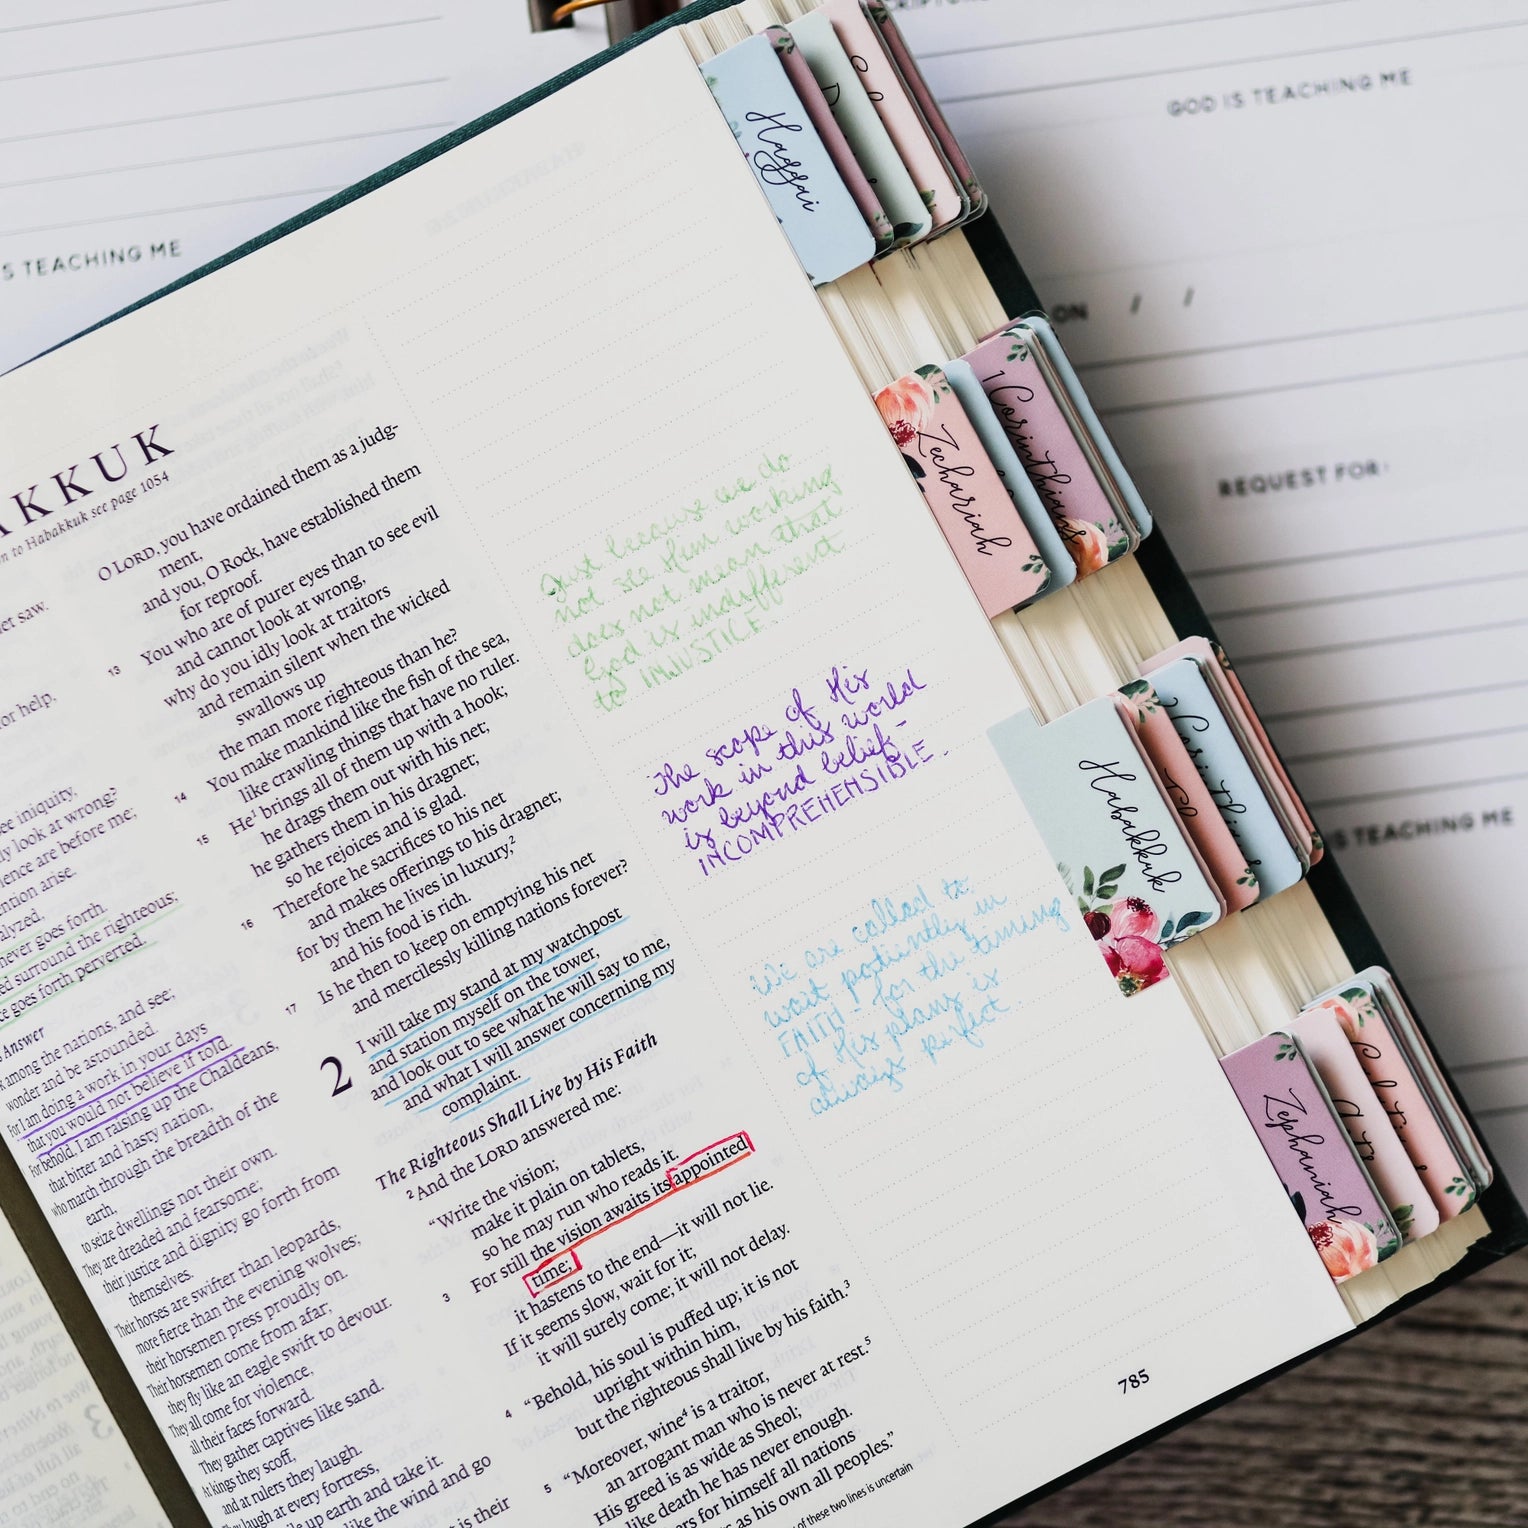 S TEACHING ME
SCRIPTURE
GOD IS TEACHING ME
ON / /
REQUEST FOR:
IS TEACHING ME
AKKUK
n to Habakkuk see page 1054
et saw.
or help,
ee iniquity,
ly look at wrong?
ence are before me;
ention arise.
alyzed,
never goes forth.
ed surround the righteous;
ce goes forth perverted.
Answer
among the nations, and see;
wonder and be astounded.
For I am doing a work in your days
that you would not believe if told.
For behold, I am raising up the Chaldeans,
that bitter and hasty nation,
who march through the breadth of the
earth,
to seize dwellings not their own.
They are dreaded and fearsome;
their justice and dignity go forth from
themselves.
Their horses are swifter than leopards,
more fierce than the evening wolves;
their horsemen press proudly on.
Their horsemen come from afar;
they fly like an eagle swift to devour.
They all come for violence,
all their faces forward.
They gather captives like sand.
At kings they scoff,
and at rulers they laugh.
They laugh at every fortress,
le up earth and take it.
like the wind and go
t is their
O LORD, you have ordained them as a judg-
ment,
and you, O Rock, have established them
for reproof.
13 You who are of purer eyes than to see evil
and cannot look at wrong,
why do you idly look at traitors
and remain silent when the wicked
swallows up
the man more righteous than he?
14 You make mankind like the fish of the sea,
like crawling things that have no ruler.
15 He¹ brings all of them up with a hook;
he drags them out with his net;
he gathers them in his dragnet;
so he rejoices and is glad.
16 Therefore he sacrifices to his net
and makes offerings to his dragnet;
for by them he lives in luxury,²
and his food is rich.
17 Is he then to keep on emptying his net
and mercilessly killing nations forever?
2 I will take my stand at my watchpost
and station myself on the tower,
and look out to see what he will say to me,
and what I will answer concerning my
complaint.
The Righteous Shall Live by His Faith
² And the LORD answered me:
“Write the vision;
make it plain on tablets,
so he may run who reads it.
3 For still the vision awaits its appointed
time;
it hastens to the end—it will not lie.
If it seems slow, wait for it;
it will surely come; it will not delay.
4 “Behold, his soul is puffed up; it is not
upright within him,
but the righteous shall live by his faith.³
5 “Moreover, wine⁴ is a traitor,
an arrogant man who is never at rest.⁵
His greed is as wide as Sheol;
like death he has never enough.
ers for himself all nations
s as his own all peoples.”
y of these two lines is uncertain
Just because we do
not see Him working
does not mean that
God is indifferent
to INJUSTICE.
The scope of His
work in this world
is beyond belief-
INCOMPREHENSIBLE.
We are called to
wait patiently in
FAITH - for the timing
of His plans is
always perfect.
785
Haggai
Zechariah
1 Corinthians
Habakkuk
2 Corinthians
Zephaniah